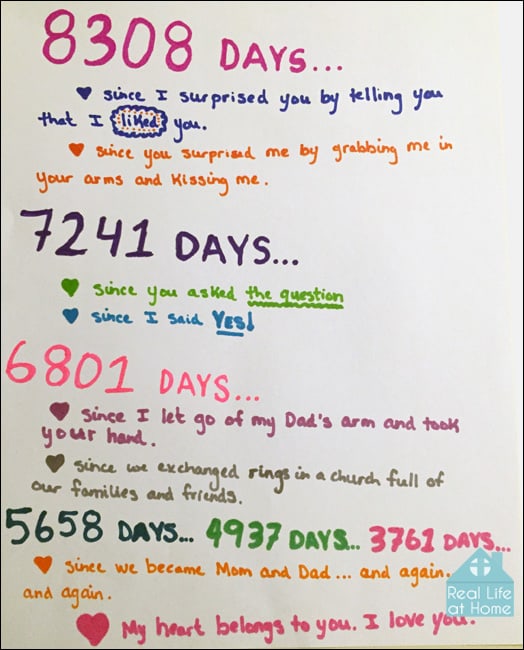 8308 DAYS...
since I surprised you by telling you
that I liked you.
since you surprised me by grabbing me in
your arms and kissing me.
7241 DAYS...
since you asked the question
since I said YES!
6801 DAYS...
since I let go of my Dad's arm and took
your hand.
since we exchanged rings in a church full of
our families and friends.
5658 DAYS... 4937 DAYS... 3761 DAYS...
since we became Mom and Dad... and again.
and again.
My heart belongs to you. I love you.
Real Life
at Home